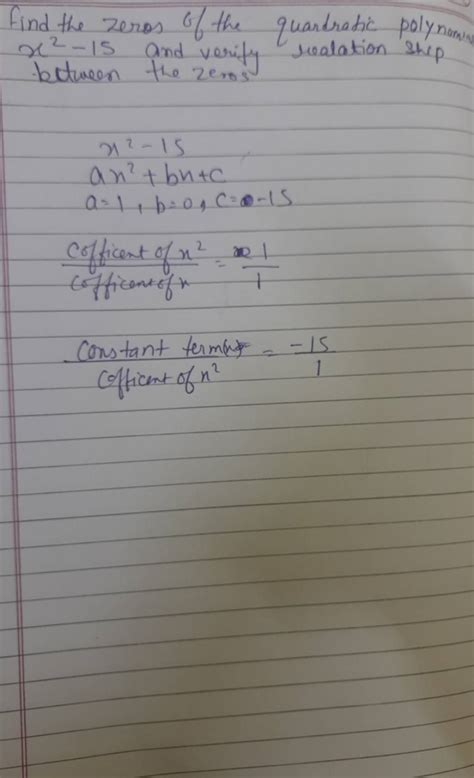 Find the zeros of the quardratic polynomi
x² - 15 and verify realation ship
between the zeros
x² - 15
ax² + bx + c
a = 1, b = 0, c = -15
Cofficent of x² = 1
Cofficent of x 1
Constant term = -15
Cofficent of x² 1